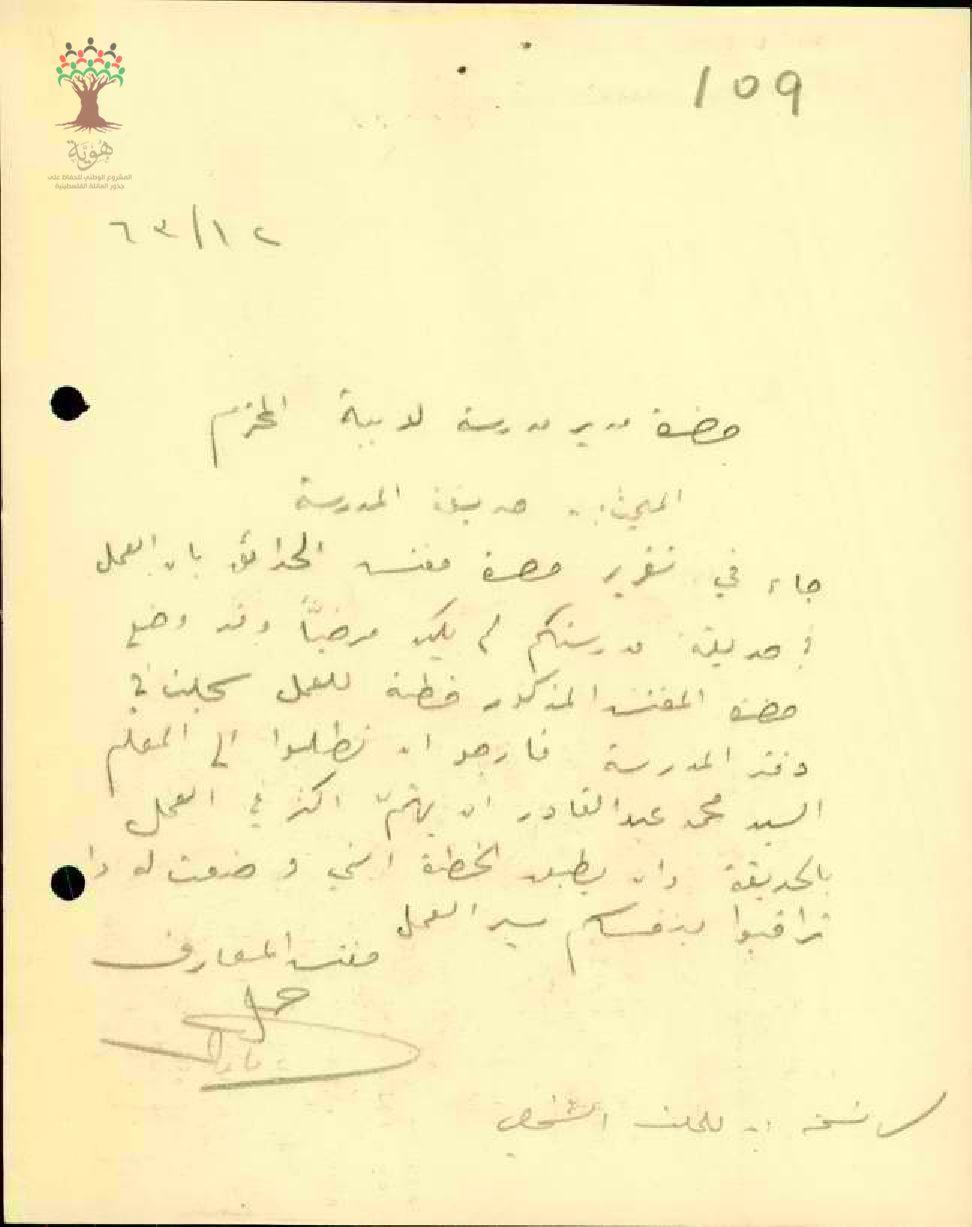 109
هوية
المشروع الوطني للحفاظ على
جذور العائلة الفلسطينية
٦٣/١٢
حضرة مدير مدرسة لوبية المحترم
المبحث :- حديقة المدرسة
جاء في تقرير حضرة مفتش الحدائق بان العمل
في حديقة مدرستكم لم يكن مرضياً وقد وضع
حضرة المفتش المذكور خطة للعمل سجلت في
دفتر المدرسة فارجو ان تطلبوا الى المعلم
السيد محمد عبد القادر ان يهتمّ اكثر في العمل
بالحديقة وان يطبق الخطة التي وضعت له وان
تراقبوا بنفسكم سير العمل
مفتش المعارف
نسخة :- للملف الشخصي